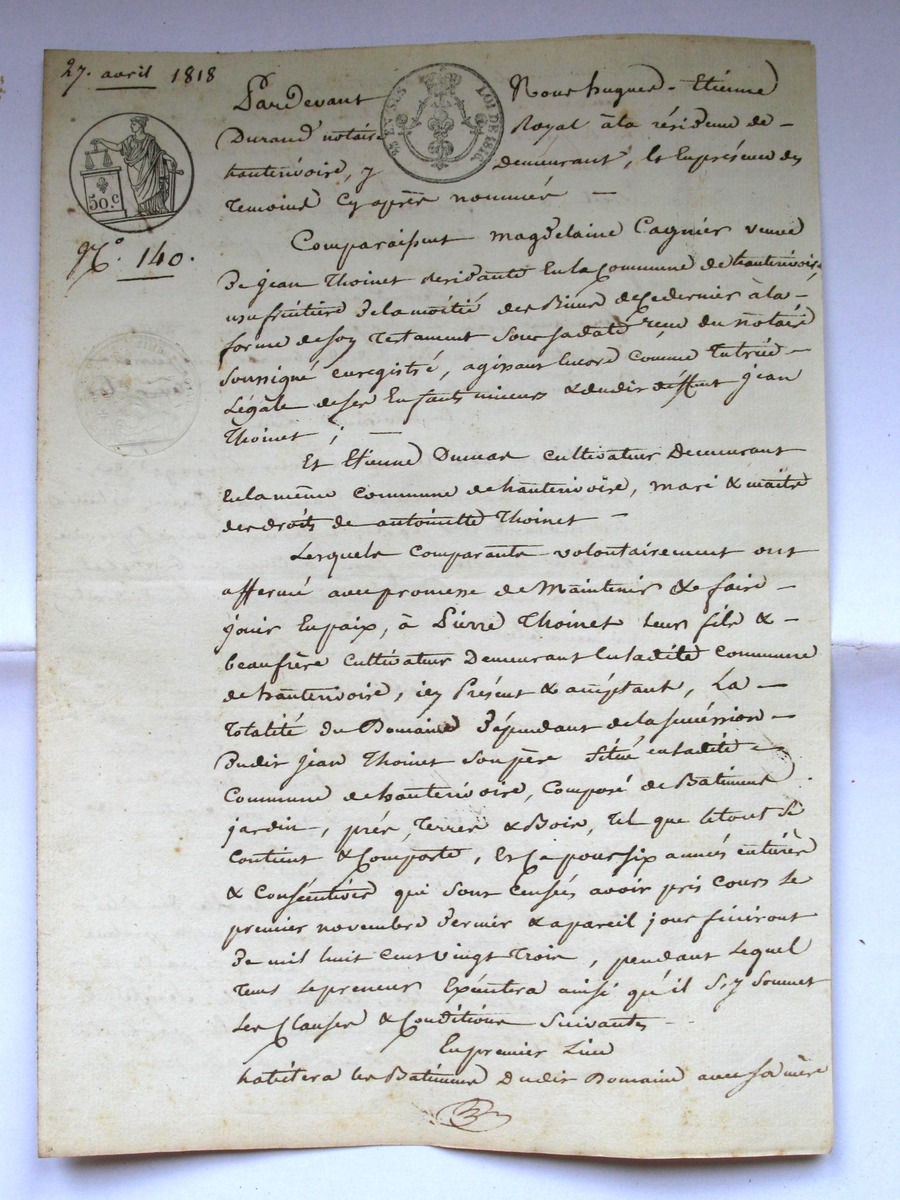 27. avril 1818
50.c
N.o 140.
25 EN SUS LOI DE 1816
Pardevant Nous hugues-Etienne
Durand notaire Royal à la résidence de-
hauterivoire, y demeurant, et En présence des
Temoins Cy après nommés -
Comparaissent magdelaine Cagnier veuve
De jean Thoinet residante En la Commune de hauterivoire,
usufruitière De la moitié des Biens de Ce dernier à la-
forme de son Testament Sous sa date reçu du notaire
Soussigné enregistré, agissant Encore Comme Tutrice-
Légale de ses Enfants mineurs & dudit deffunt jean
Thoinet ; -
Et Etienne Dumas cultivateur Demeurant
En la même commune de hauterivoire, mari & maitre
des droits de antoinette Thoinet -
Lesquels Comparants volontairement ont
affermé avec promesse de Maintenir & de faire-
jouir En paix, à Pierre Thoinet leurs fils &-
beaufrère Cultivateur Demeurant En ladite commune
de hauterivoire, icy Présent & acceptant, La-
Totalité du Domaine Dépendant de la succéssion-
Dudit jean Thoinet son père Situé en ladite-
Commune de hauterivoire, Composé de Batiments
jardin, prés, Terres & Bois, Tel que le tout Se
Contient & Comporte, Et Ça pour six années entières
& Conséutives qui sont Censés avoir pris Cours le
premier novembre Dernier & a pareil jour finiront
De mil huit Cent vingt Trois, pendant Lequel
Tems Le preneur Exécutera ainsi qu'il S'y Soumet
Les Clauses & Conditions Suivantes-
En premier Lieu
habitera les Batiments Dudit Domaine avec Sa mère